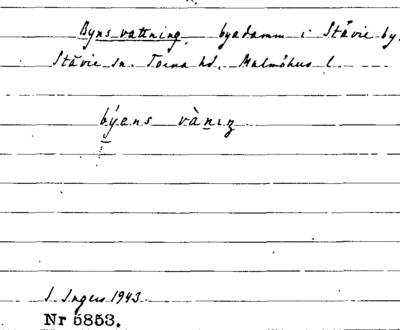 Byns vattning, byadamm i Stävie by,
Stävie sn. Torna hd, Malmöhus l.
býans vànıȥ
I. Ingers 1943.
Nr 5853.